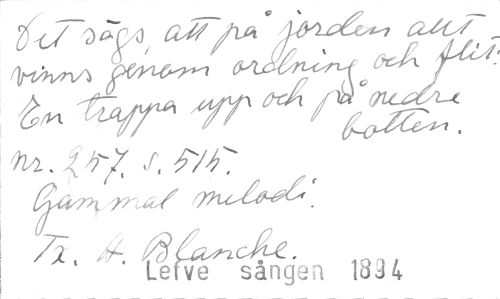 Det sägs, att på jorden allt
vinns genom ordning och flit:
En trappa upp och på nedre
botten.
nr. 257. s. 515.
Gammal melodi.
Tx. A. Blanche.
Lefve sången 1894